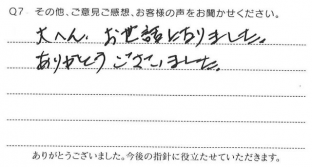 Q7 その他、ご意見ご感想、お客様の声をお聞かせください。
大へん、お世話になりました。
ありがとうございました。
ありがとうございました。今後の指針に役立たせていただきます。